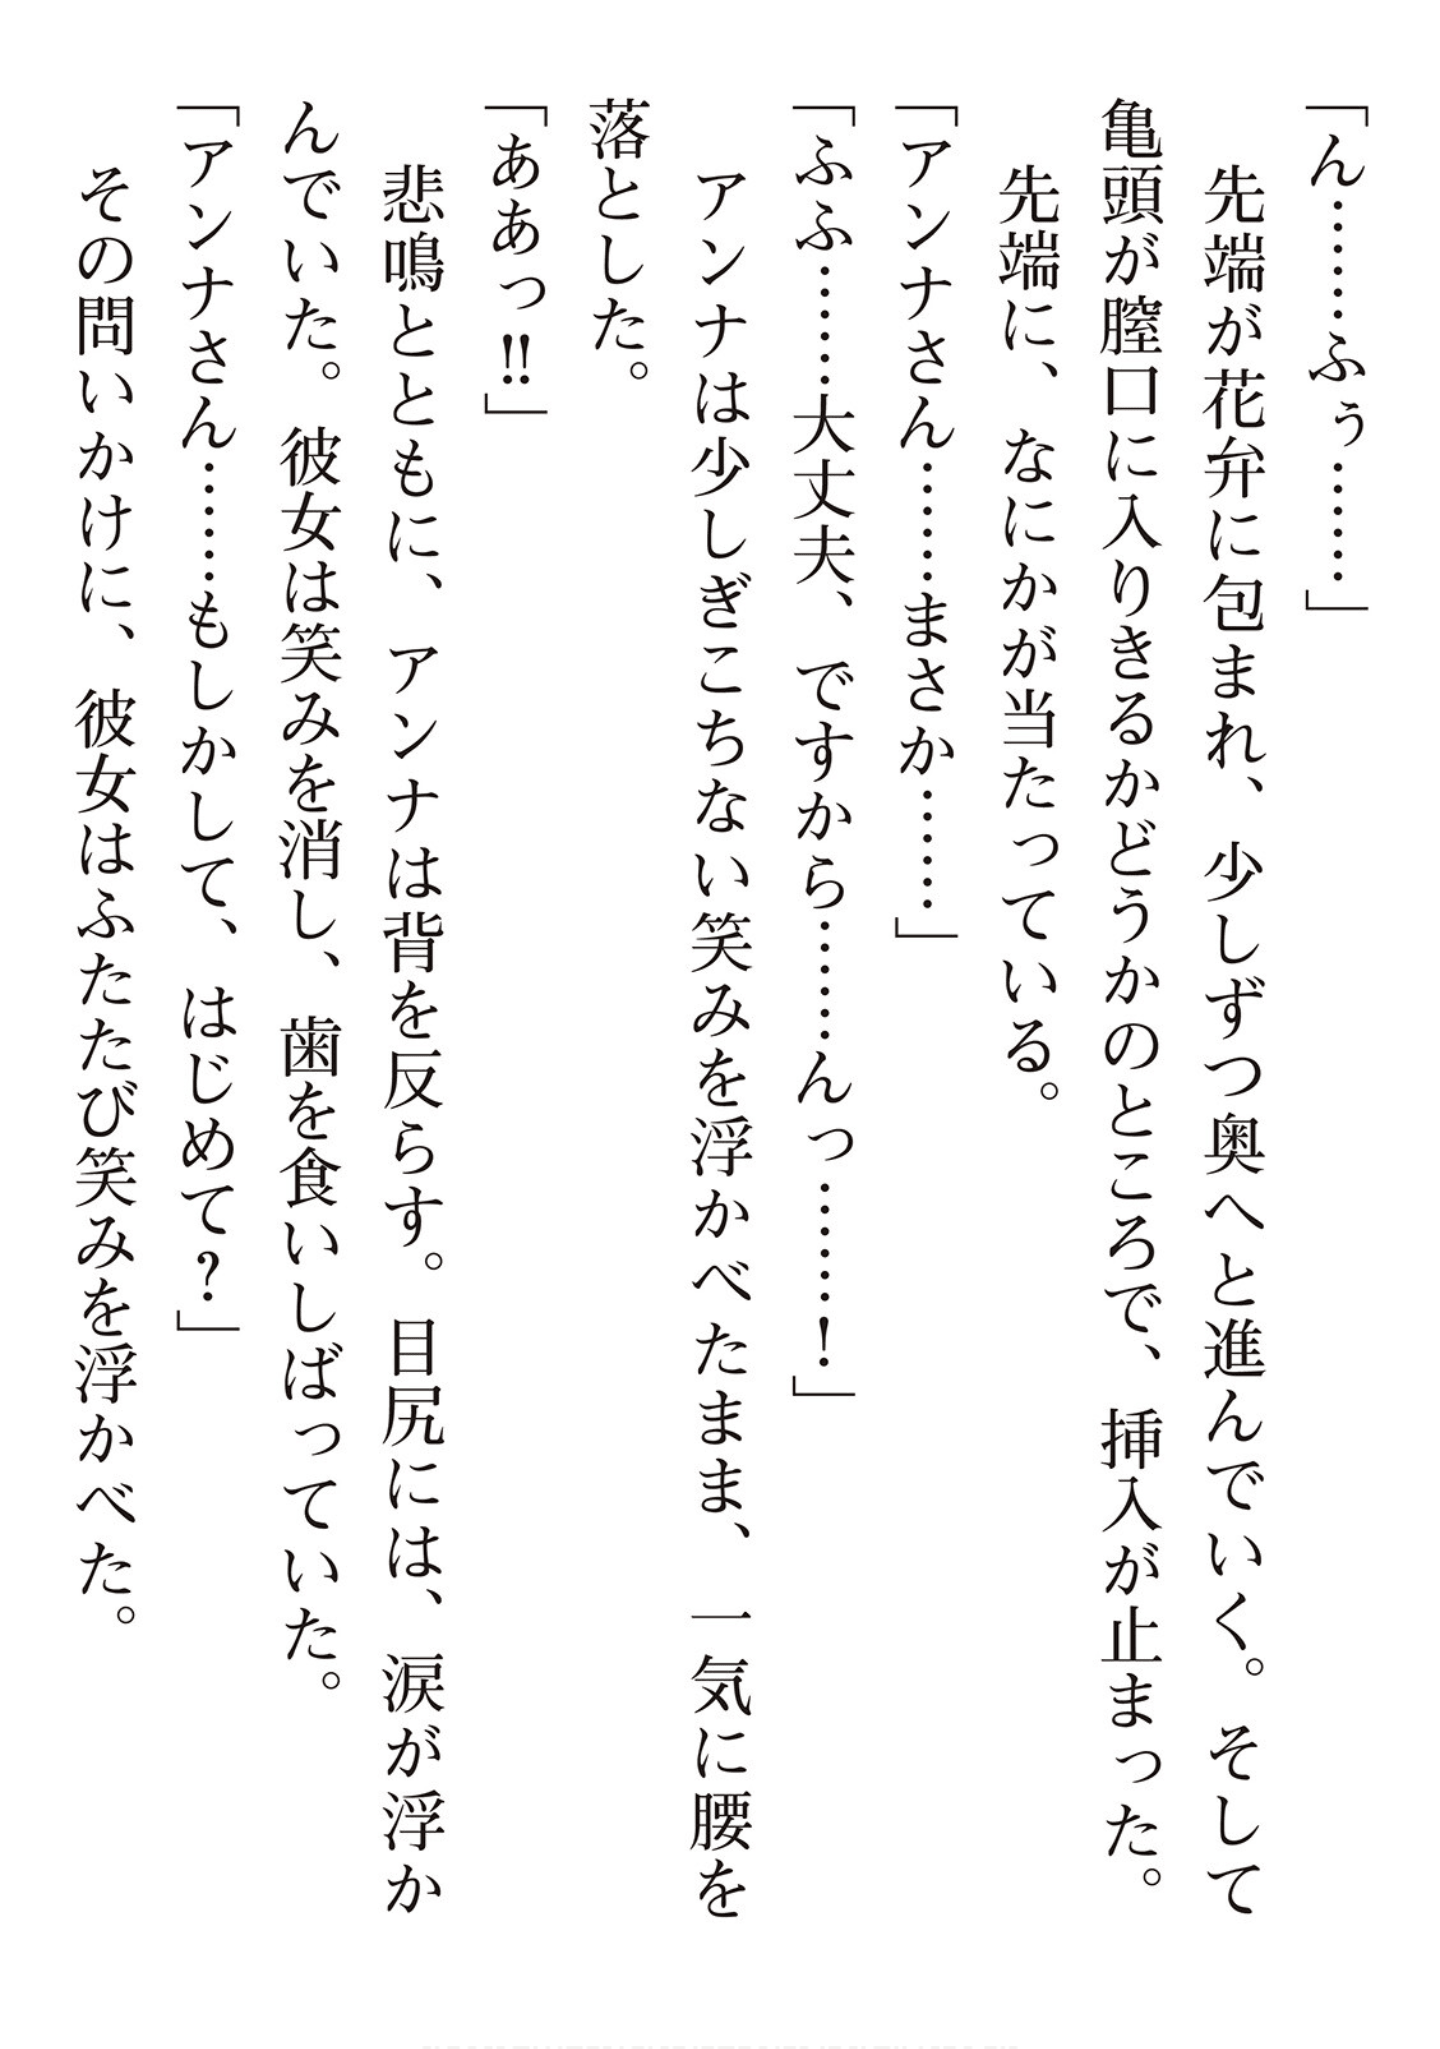 「ん………ふぅ………」
　先端が花弁に包まれ、少しずつ奥へと進んでいく。そして
亀頭が膣口に入りきるかどうかのところで、挿入が止まった。
　先端に、なにかが当たっている。
「アンナさん………まさか………」
「ふふ………大丈夫、ですから………んっ………！」
　アンナは少しぎこちない笑みを浮かべたまま、一気に腰を
落とした。
「ああっ‼」
　悲鳴とともに、アンナは背を反らす。目尻には、涙が浮か
んでいた。彼女は笑みを消し、歯を食いしばっていた。
「アンナさん………もしかして、はじめて？」
　その問いかけに、彼女はふたたび笑みを浮かべた。